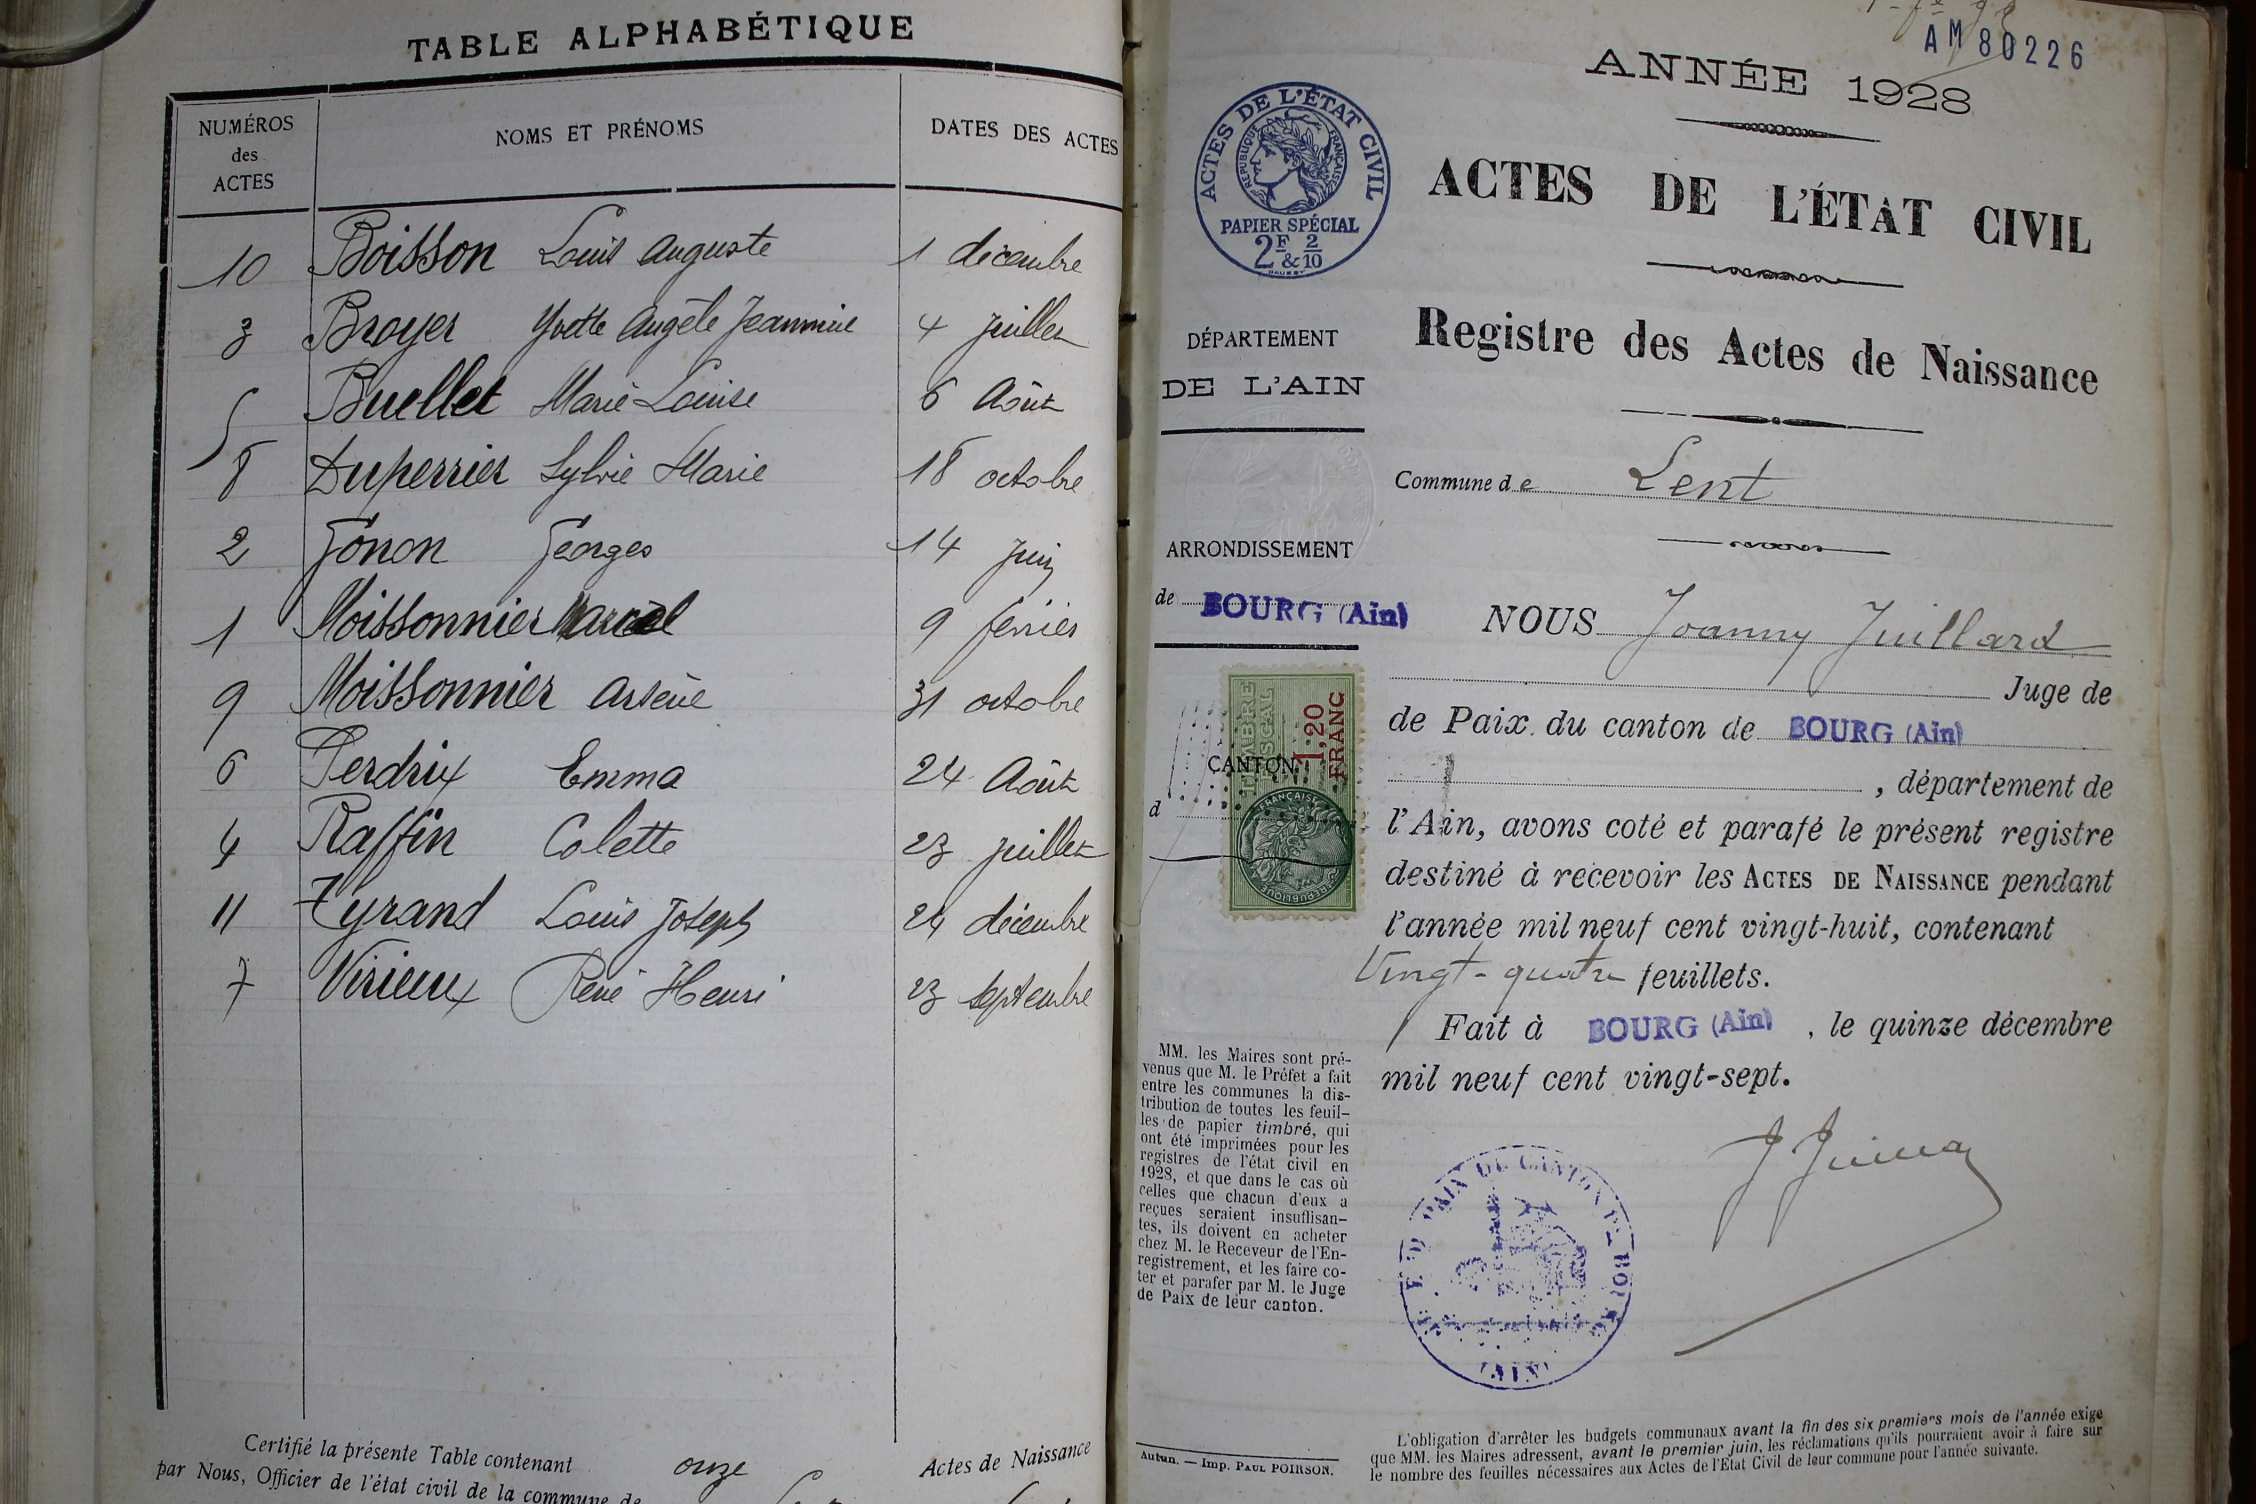 TABLE ALPHABÉTIQUE
NUMÉROS des ACTES
NOMS ET PRÉNOMS
DATES DES ACTES
10 Boisson Louis Auguste 1 décembre
3 Broyer Yvette Angèle Jeannine 4 Juillet
5 Buellet Marie Louise 6 Août
8 Duperrier Sylvie Marie 18 octobre
2 Gonon Georges 14 Juin
1 Moissonnier Marcel 9 février
9 Moissonnier Arsène 31 octobre
6 Perdrix Emma 24 Août
4 Raffin Colette 23 Juillet
11 Tyrand Louis Joseph 24 décembre
7 Virieux René Henri 23 Septembre
Certifié la présente Table contenant onze Actes de Naissance
par Nous, Officier de l'état civil de la commune de
AM 80226
ANNÉE 1928
ACTES DE L'ÉTAT CIVIL
RÉPUBLIQUE FRANÇAISE
PAPIER SPÉCIAL
2F & 2/10
ACTES DE L'ÉTAT CIVIL
Registre des Actes de Naissance
DÉPARTEMENT
DE L'AIN
Commune de Lent
ARRONDISSEMENT
de BOURG (Ain)
TIMBRE FISCAL
1,20 FRANC
CANTON
d
NOUS Joanny Juillard
Juge de
de Paix du canton de BOURG (Ain)
, département de
l'Ain, avons coté et parafé le présent registre
destiné à recevoir les ACTES DE NAISSANCE pendant
l'année mil neuf cent vingt-huit, contenant
Vingt-quatre feuillets.
Fait à BOURG (Ain), le quinze décembre
mil neuf cent vingt-sept.
MM. les Maires sont pré-
venus que M. le Préfet a fait
entre les communes la dis-
tribution de toutes les feuil-
les de papier timbré, qui
ont été imprimées pour les
registres de l'état civil en
1928, et que dans le cas où
celles que chacun d'eux a
reçues seraient insuffisan-
tes, ils doivent en acheter
chez M. le Receveur de l'En-
registrement, et les faire co-
ter et parafer par M. le Juge
de Paix de leur canton.
Autun. — Imp. PAUL POIRSON.
L'obligation d'arrêter les budgets communaux avant la fin des six premiers mois de l'année exige
que MM. les Maires adressent, avant le premier juin, les réclamations qu'ils pourraient avoir à faire sur
le nombre des feuilles nécessaires aux Actes de l'Etat Civil de leur commune pour l'année suivante.